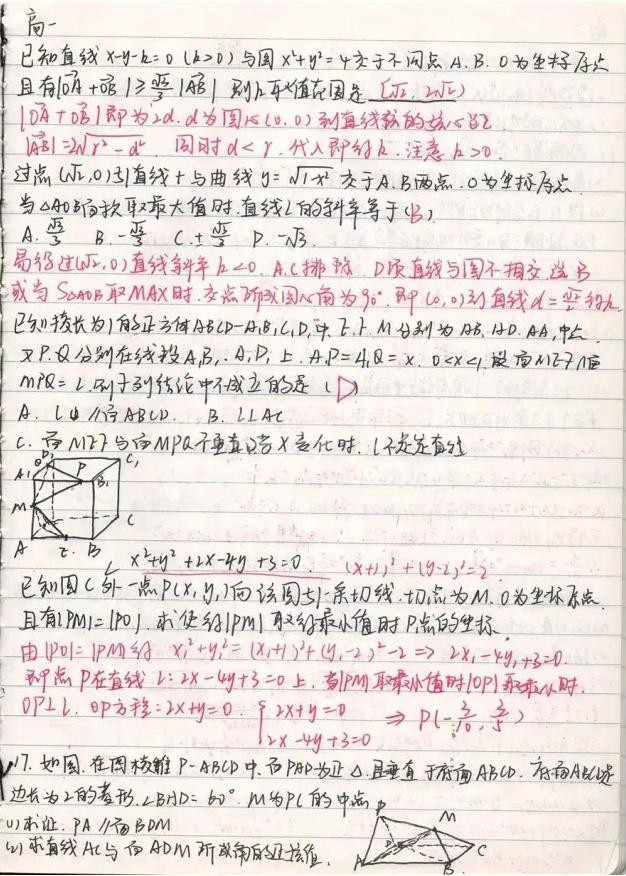 高一
已知直线 x-y-k=0 (k>0) 与圆 x²+y²=4 交于不同点 A.B. O为坐标原点
且有|OA+OB| ≥ √3/3 |AB| 则k取值范围是 [√2, 2√2)
|OA+OB| 即为2d. d为圆心(0,0)到直线的
|AB|=2√r²-d² 同时 d<r. 代入即得k. 注意 k>0.
过点(√2,0)引直线l与曲线 y=√1-x² 交于A.B两点. O为坐标原点.
当△AOB面积取最大值时.直线L的斜率等于(B)
A. √3/3 B. -√3/3 C. ±√3/3 D. -√3.
易得过(√2,0)直线斜率 k<0. A.C排除. D项直线与圆不相交.选B
或当S△AOB取MAX时.交点所成圆心角为90°.即(0,0)到直线d=√2/2 得k.
已知棱长为1的正方体ABCD-A₁B₁C₁D₁中. E.F.M分别为AB.AD.AA₁中点.
又P.Q分别在线段A₁B₁.A₁D₁上. A₁P=A₁Q=x. 0<x<1.设面MEF∩面
MPQ=L.则下列结论中不成立的是(D)
A. L//面ABCD. B. L⊥AC
C. 面MEF与面MPQ不垂直 D.当X变化时. L不是定直线
D₁ C₁
Q
A₁ P B₁
M
C
A E B
x²+y²+2x-4y+3=0. (x+1)²+(y-2)²=2
已知圆C外一点P(x₁y₁)向该圆引一条切线.切点为M.O为坐标原点.
且有|PM|=|PO|.求使得|PM|取得最小值时P点的坐标.
由|PO|=|PM|得 x₁²+y₁²=(x₁+1)²+(y₁-2)²-2 ⇒ 2x₁-4y₁+3=0.
即P点在直线 l: 2x-4y+3=0 上.当|PM|取最小值时|OP|取最小时.
OP⊥L. OP方程: 2x+y=0 { 2x+y=0 ⇒ P(-3/10, 3/5)
2x-4y+3=0
17. 如图.在四棱锥P-ABCD中.面PAD为正△.且垂直于底面ABCD. 底面ABCD是
边长为2的菱形.∠BAD=60°. M为PC的中点
(1)求证. PA//面BDM
(2)求直线AC与面ADM所成角的正弦值.
P
M
D
C
A
B